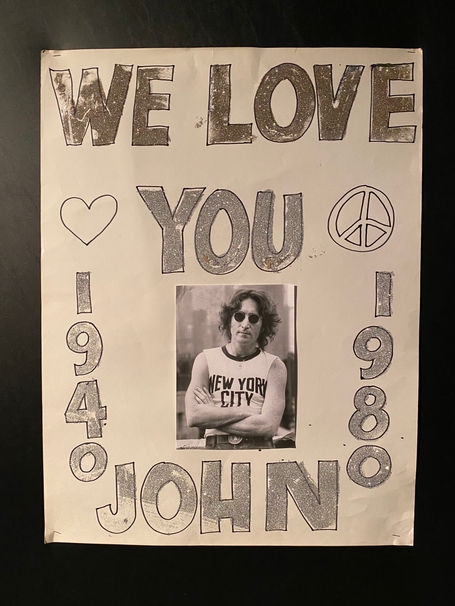 WE LOVE
YOU
1940
1980
NEW YORK
CITY
JOHN